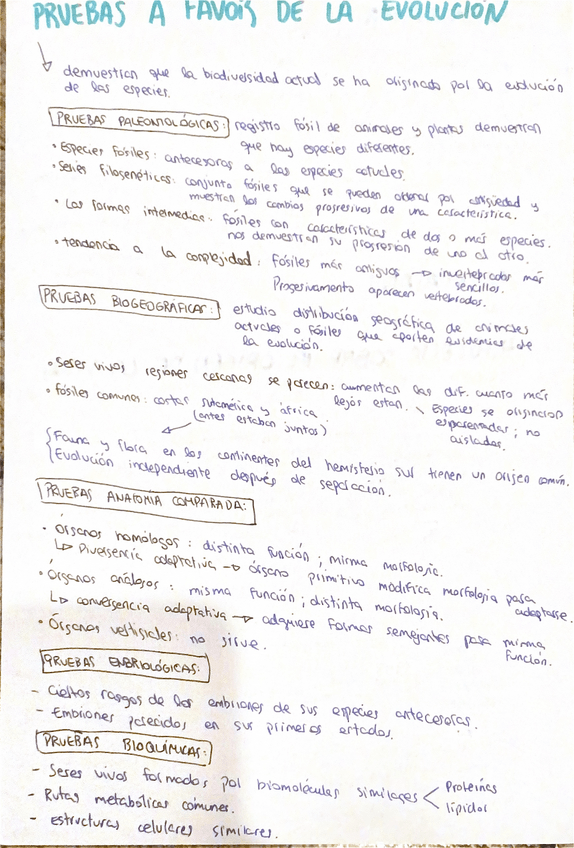 PRUEBAS A FAVOR DE LA EVOLUCIÓN
demuestran que la biodiversidad actual se ha originado por la evolución
de las especies.
PRUEBAS PALEONTOLÓGICAS: registro fósil de animales y plantas demuestran
que hay especies diferentes.
• Especies fósiles: antecesoras a las especies actuales.
• Series filogenéticas: conjunto fósiles que se pueden ordenar por antigüedad y
muestran los cambios progresivos de una característica.
• Las formas intermedias: fósiles con características de dos o más especies.
nos demuestran su progresión de uno al otro.
• tendencia a la complejidad: fósiles más antiguos → invertebrados más
sencillos.
Progresivamente aparecen vertebrados.
PRUEBAS BIOGEOGRÁFICAS: estudio distribución geográfica de animales
actuales o fósiles que aporten evidencias de
la evolución.
• Seres vivos regiones cercanas se parecen: aumentan las dif. cuanto más
lejos estan. Especies se originaron
emparentadas; no
aisladas.
• fósiles comunes: costas sudamérica y áfrica
(antes estaban juntos)
Fauna y flora en los continentes del hemisferio sur tienen un origen común.
Evolución independiente después de separación.
PRUEBAS ANATOMIA COMPARADA:
• Órganos homólogos: distinta función; misma morfología.
↳ Divergencia adaptativa → órgano primitivo modifica morfología para
adaptarse.
• Órganos análogos: misma función; distinta morfología.
↳ convergencia adaptativa → adquiere formas semejantes para misma
función.
• Órganos vestigiales: no sirve.
PRUEBAS EMBRIOLÓGICAS:
- Ciertos rasgos de los embriones de sus especies antecesoras.
- Embriones parecidos en sus primeros estados.
PRUEBAS BIOQUÍMICAS:
- Seres vivos formados por biomoléculas similares < Proteínas
lípidos
- Rutas metabólicas comunes.
- estructuras celulares similares.